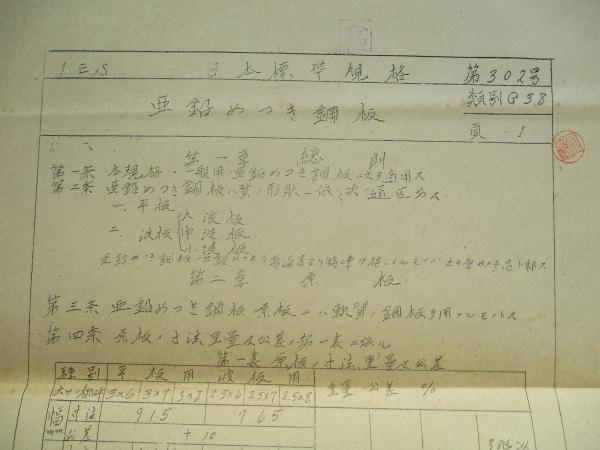 JES 日本標準規格 第302号
類別G38
亜鉛めつき鋼板
頁-1
第一章 總則
第一条 本規格ハ一般用ノ亜鉛めつき鋼板ニ之ヲ適用ス
第二条 亜鉛めつき鋼板ハ其ノ形状ニ依リ次ノ通区分ス
一. 平板
二. 波板
大波板
中波板
小波板
亜鉛めつき鋼板ノ
第二章 原板
第三条 亜鉛めつき鋼板ノ原板ニハ軟質ノ鋼板ヲ用フルモノトス
第四条 原板ノ寸法重量及公差ハ第一表ニ依ル
第一表 原板ノ寸法、重量及公差
種別 平板用 波板用
3×6 3×7 3×8 2.5×6 2.5×7 2.5×8 重量公差 %
幅 寸法 915 765
公差 +10